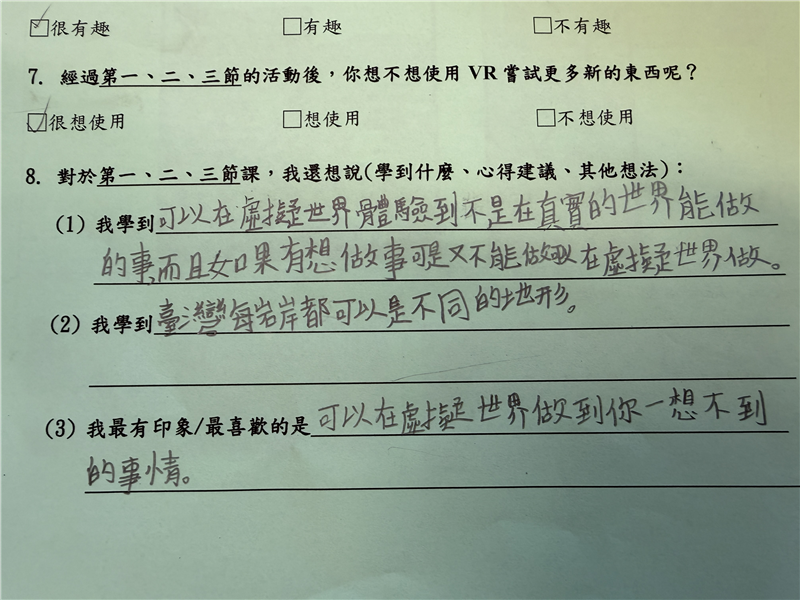 ☑很有趣 □有趣 □不有趣
7. 經過第一、二、三節的活動後，你想不想使用 VR 嘗試更多新的東西呢？
☑很想使用 □想使用 □不想使用
8. 對於第一、二、三節課，我還想說(學到什麼、心得建議、其他想法)：
(1) 我學到可以在虛擬世界體驗到不是在真實的世界能做
的事,而且如果有想做事可是又不能做可以在虛擬世界做。
(2) 我學到臺灣每岩岸都可以是不同的地形。
(3) 我最有印象/最喜歡的是可以在虛擬世界做到你一想不到
的事情。